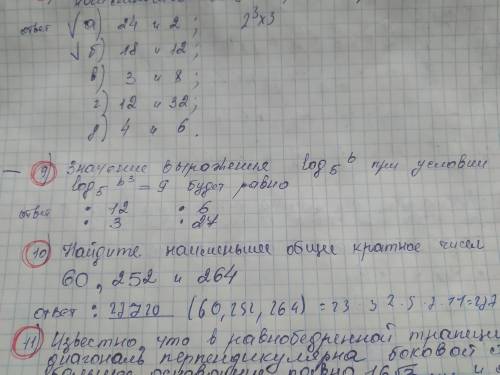 ответ √ а) 24 и 2; 2³×3
√ б) 18 и 12;
в) 3 и 8;
г) 12 и 32;
д) 4 и 6.
— 9) Значение выражения log₅ b при условии
log₅ b³ = 9 будет равно
ответ : 12 : 6
: 3 : 27
10) Найдите наименьшее общее кратное чисел
60, 252 и 264
ответ : 27720 (60, 252, 264) = 23 · 3 2 · 5 · 7 · 11 = 277
11) Известно, что в равнобедренной трапеции
диагональ перпендикулярна боковой
большее основание равно